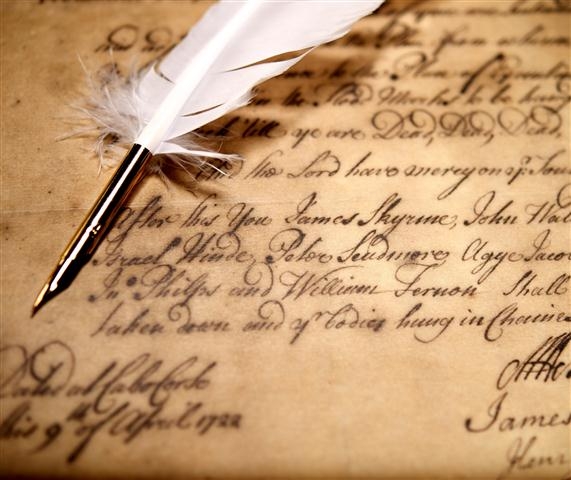 from
to the Place of
the Flod Marks to be
till ye are Dead, Dead, Dead,
the Lord have mercy on yr. Soul
After this You James Skyrme, John Wal
Israel Hinde, Peter Scudmore, Agge Jaco
Jno. Philps and William Fernon Shall
taken down and yr bodies hung in Chaines
Dated at Cabo Corso
this 9th of April 1722
James
Henr